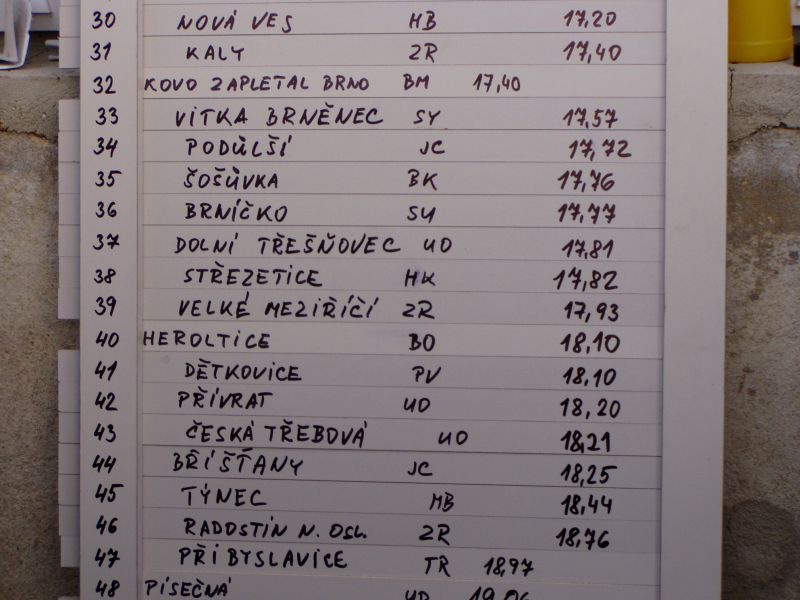 30 NOVÁ VES HB 17,20
31 KALY ZR 17,40
32 KOVO ZAPLETAL BRNO BM 17,40
33 VÍTKA BRNĚNEC SY 17,57
34 PODŮLŠÍ JC 17,72
35 ŠOŠŮVKA BK 17,76
36 BRNÍČKO SU 17,77
37 DOLNÍ TŘEŠŇOVEC UO 17,81
38 STŘEZETICE HK 17,82
39 VELKÉ MEZIŘÍČÍ ZR 17,93
40 HEROLTICE BO 18,10
41 DĚTKOVICE PV 18,10
42 PŘÍVRAT UO 18,20
43 ČESKÁ TŘEBOVÁ UO 18,21
44 BŘÍŠŤANY JC 18,25
45 TÝNEC HB 18,44
46 RADOSTÍN N. OSL. ZR 18,76
47 PŘIBYSLAVICE TR 18,97
48 PÍSEČNÁ UO 19,06